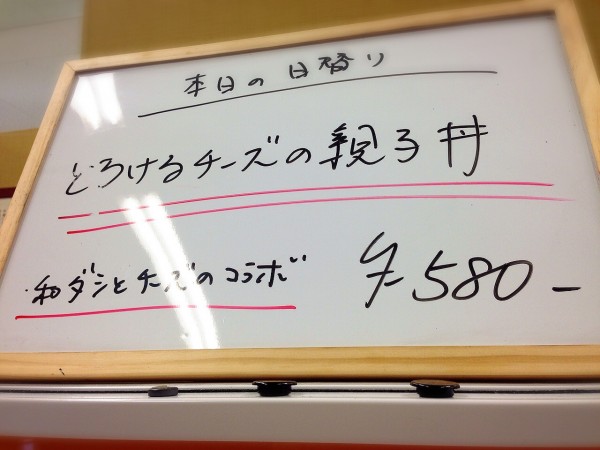 本日の日替り
とろけるチーズの親子丼
和ダシとチーズのコラボ
¥580-